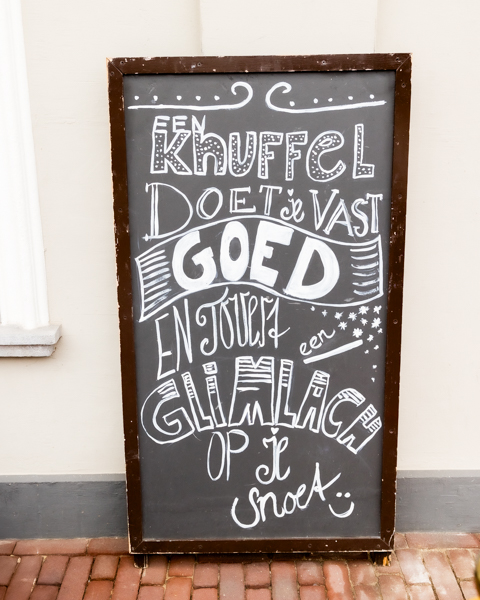 EEN
KNUFFEL
DOET je VAST
GOED
EN TOVERT een
GLIMLACH
OP JE
snoet